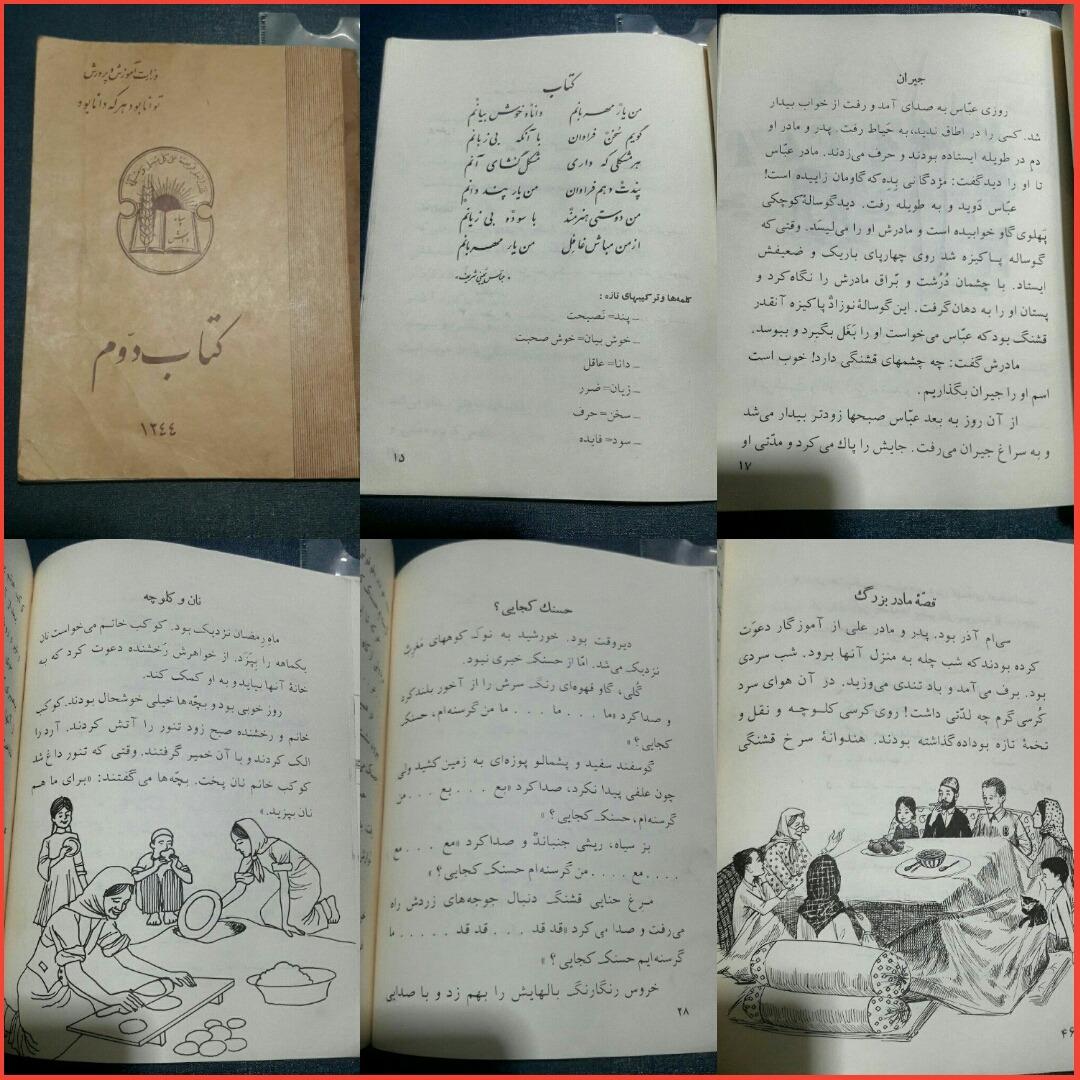 وزارت آموزش و پرورش
توانا بود هر که دانا بود
سپاه دانش
کتاب دوّم
۱۳۴۴
کتاب
من یار مهربانم دانا و خوش بیانم
گویم سُخَن فراوان با آنکه بی‌زبانم
هر مشکلی که داری مُشکِل گُشای آنم
پندت دهم فراوان من یار پند دانم
من دوستی هنرمند با سود و بی زیانم
از من مباش غافل من یار مهربانم
«عباس یمینی شریف»
کلمه‌ها و ترکیبهای تازه :
ـ پند= نَصیحت
ـ خوش بیان= خوش صحبت
ـ دانا= عاقل
ـ زیان= ضرر
ـ سخن= حرف
ـ سود= فایده
۱۵
جیران
روزی عبّاس به صدای آمد و رفت از خواب بیدار
شد. کسی را در اطاق ندید، به حَیاط رفت. پدر و مادر او
دمِ در طویله ایستاده بودند و حرف می‌زدند. مادر عبّاس
تا او را دید گفت: مژدگانی بِدِه که گاومان زاییده است!
عبّاس دَوید و به طویله رفت. دید گوسالهٔ کوچکی
پَهلوی گاو خوابیده است و مادرش او را می‌لیسَد. وقتی که
گوساله پاکیزه شد روی چهارپای باریک و ضعیفش
ایستاد. با چشمان دُرُشت و بَراق مادرش را نگاه کرد و
پستان او را به دهان گرفت. این گوسالهٔ نوزاد پاکیزه آنقدر
قشنگ بود که عبّاس می‌خواست او را بَغَل بگیرد و ببوسد.
مادرش گفت: چه چشمهای قشنگی دارد! خوب است
اسم او را جیران بگذاریم.
از آن روز به بعد عبّاس صبحها زودتر بیدار می‌شد
و به سراغ جیران می‌رفت. جایش را پاک می‌کرد و مدّتی او
۱۷
نان و کلوچه
ماهِ رمضان نزدیک بود. کوکب خانم می‌خواست نان
یکماهه را بِپَزَد. از خواهرش رَخشنده دعوت کرد که به
خانهٔ آنها بیاید و به او کمک کند.
روز خوبی بود و بچّه‌ها خیلی خوشحال بودند. کوکب
خانم و رخشنده صبح زود تنور را آتش کردند. آرد را
الک کردند و با آن خمیر گرفتند. وقتی که تنور داغ شد
کوکب خانم نان پخت. بچّه‌ها می‌گفتند: «برای ما هم
نان بپزید.»
حسنک کجایی؟
دیروقت بود. خورشید به نوک کوههای مَغرِب
نزدیک می‌شد. امّا از حسنک خبری نبود.
گُلی، گاو قهوه‌ای رنگ سرش را از آخور بلند کرد
و صدا کرد «ما . . . ما . . . . ما من گرسنه‌ام، حسنک
کجایی؟»
گوسفند سفید و پشمالو پوزه‌ای به زمین کشید ولی
چون علفی پیدا نکرد، صدا کرد «بع . . . . بع . . . . من
گرسنه‌ام، حسنک کجایی؟»
بز سیاه، ریشی جنبانْد و صدا کرد «مع . . . مع
. . . . مع . . . . من گرسنه‌ام حسنک کجایی؟»
مرغ حنایی قشنگ دنبال جوجه‌های زردش راه
می‌رفت و صدا می‌کرد «قد قد . . . قد قد . . . . . ما
گرسنه‌ایم حسنک کجایی؟»
خروس رنگارنگ بالهایش را بهم زد و با صدایی
۲۸
قصّهٔ مادر بزرگ
سی‌ام آذر بود. پدر و مادر علی از آموزگار دعوَت
کرده بودند که شب چله به منزل آنها برود. شب سردی
بود. برف می‌آمد و باد تندی می‌وزید. در آن هوای سرد
کُرسی گرم چه لذّتی داشت! روی کرسی کلوچه و نقل و
تخمهٔ تازه بوداده گذاشته بودند. هندوانهٔ سرخ قشنگی
۴۶